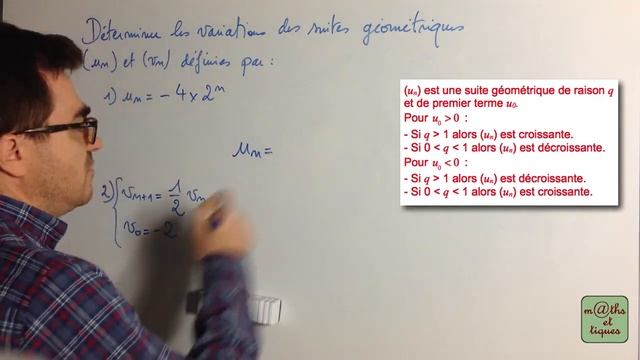 Déterminer les variations des suites géométriques
(uₙ) et (vₙ) définies par :
1) uₙ = -4 × 2ⁿ
uₙ =
2) { vₙ₊₁ = 1/2 vₙ
v₀ = -2
(uₙ) est une suite géométrique de raison q
et de premier terme u₀.
Pour u₀ > 0 :
- Si q > 1 alors (uₙ) est croissante.
- Si 0 < q < 1 alors (uₙ) est décroissante.
Pour u₀ < 0 :
- Si q > 1 alors (uₙ) est décroissante.
- Si 0 < q < 1 alors (uₙ) est croissante.
m@ths
et
tiques